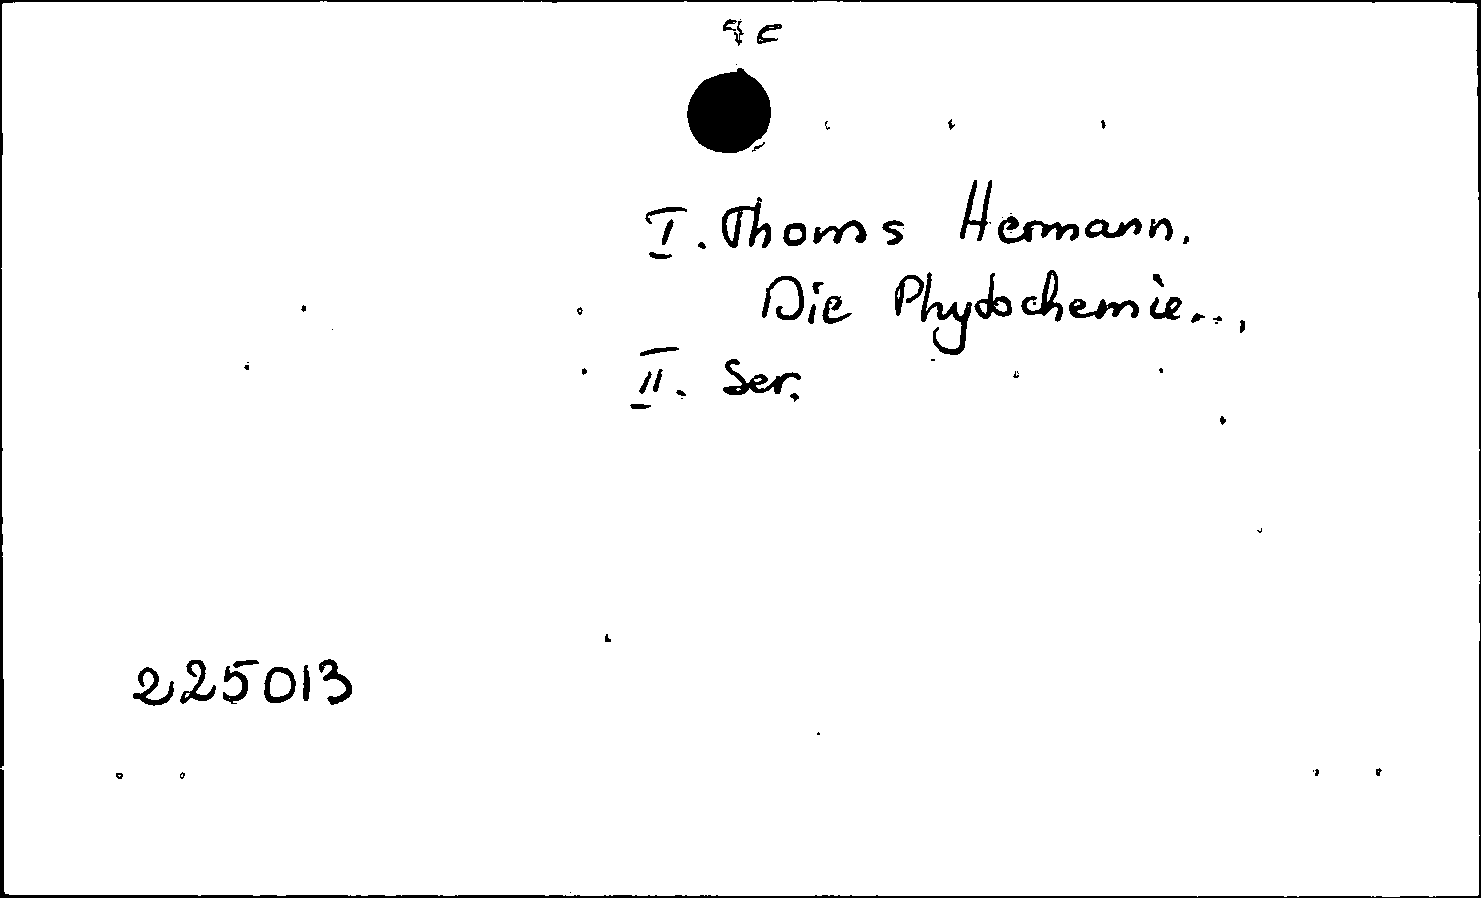 I. Thoms Hermann.
Die Phytochemie...,
II. Ser.
225013